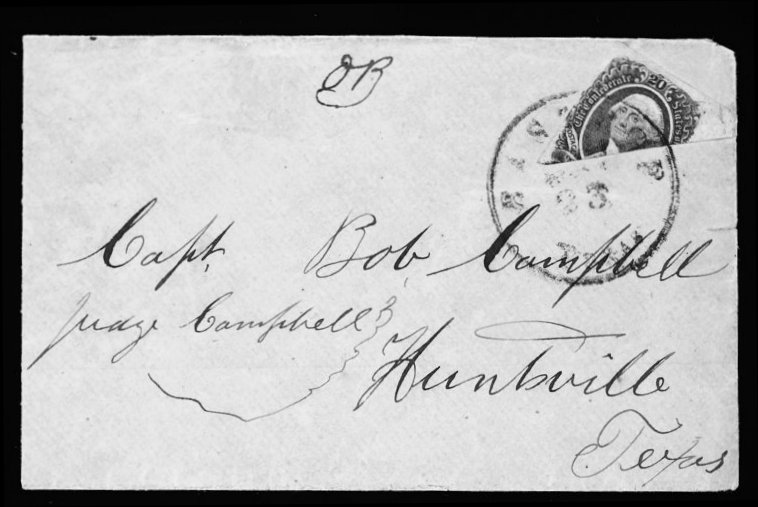 The Confederate
20
States
23
TEXAS
Capt. Bob Campbell
Judge Campbell
Huntsville
Texas